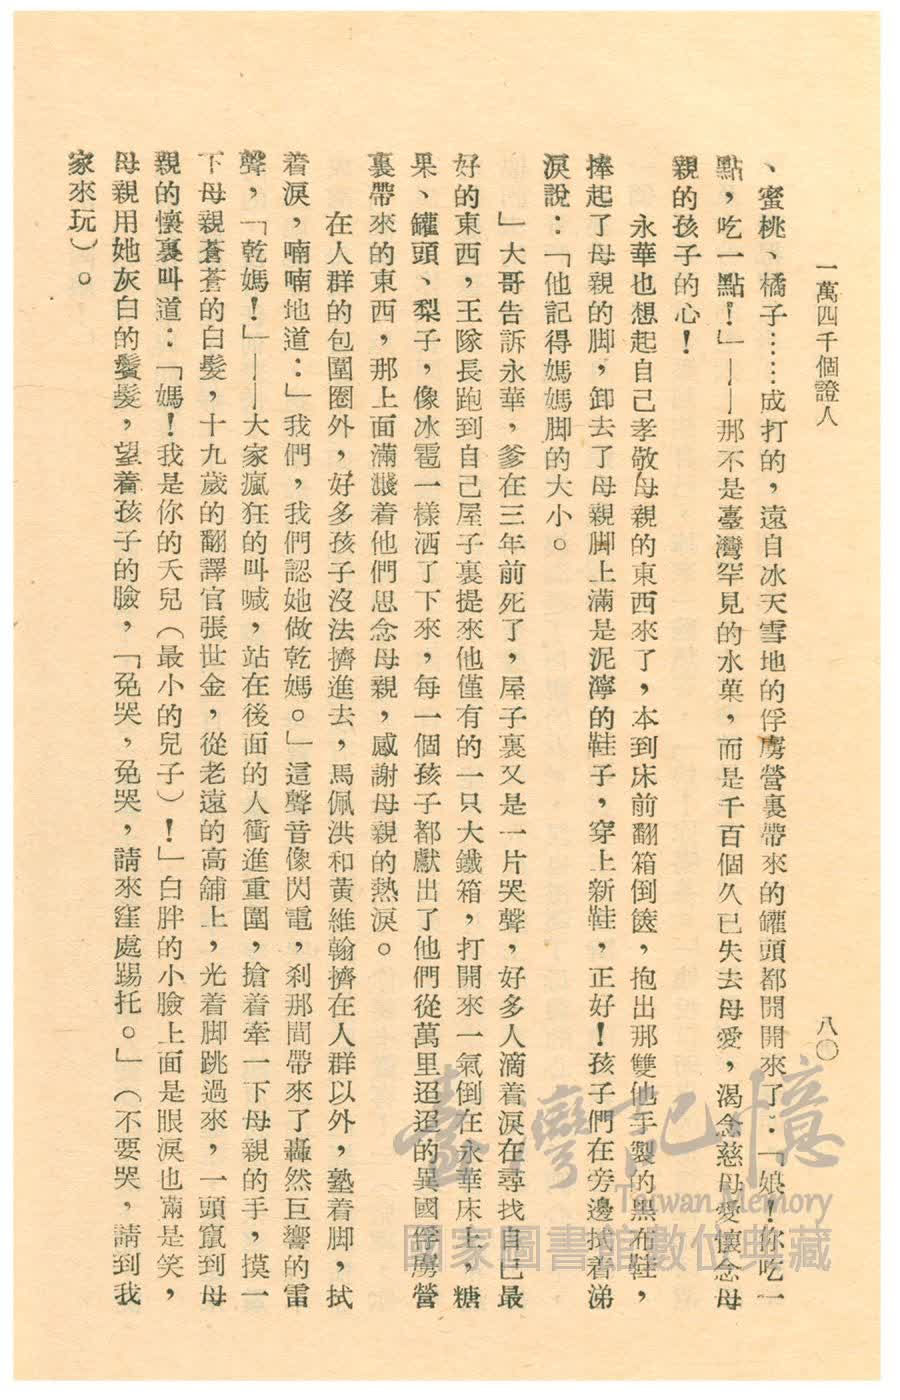 一萬四千個證人
八〇
、蜜桃、橘子……成打的，遠自冰天雪地的俘虜營裏帶來的罐頭都開開來了：「娘！你吃一
點，吃一點！」——那不是臺灣罕見的水菓，而是千百個久已失去母愛，渴念慈母愛懷念母
親的孩子的心！
永華也想起自己孝敬母親的東西來了，本到床前翻箱倒篋，抱出那雙他手製的黑布鞋，
捧起了母親的脚，卸去了母親脚上滿是泥濘的鞋子，穿上新鞋，正好！孩子們在旁邊拭着涕
淚說：「他記得媽媽脚的大小。
」大哥告訴永華，爹在三年前死了，屋子裏又是一片哭聲，好多人滴着淚在尋找自己最
好的東西，王隊長跑到自己屋子裏提來他僅有的一只大鐵箱，打開來一氣倒在永華床上，糖
果、罐頭、梨子，像冰雹一樣洒了下來，每一個孩子都獻出了他們從萬里迢迢的異國俘虜營
裏帶來的東西，那上面滿濺着他們思念母親，感謝母親的熱淚。
在人群的包圍圈外，好多孩子沒法擠進去，馬佩洪和黃維翰擠在人群以外，墊着脚，拭
着淚，喃喃地道：」我們，我們認她做乾媽。」這聲音像閃電，刹那間帶來了轟然巨響的雷
聲，「乾媽！」——大家瘋狂的叫喊，站在後面的人衝進重圍，搶着牽一下母親的手，摸一
下母親蒼蒼的白髮，十九歲的翻譯官張世金，從老遠的高舖上，光着脚跳過來，一頭竄到母
親的懷裏叫道：「媽！我是你的夭兒（最小的兒子）！」白胖的小臉上面是眼淚也滿是笑，
母親用她灰白的鬢髮，望着孩子的臉，「免哭，免哭，請來窪處踢托。」（不要哭，請到我
家來玩）。
臺灣記憶
Taiwan Memory
國家圖書館數位典藏